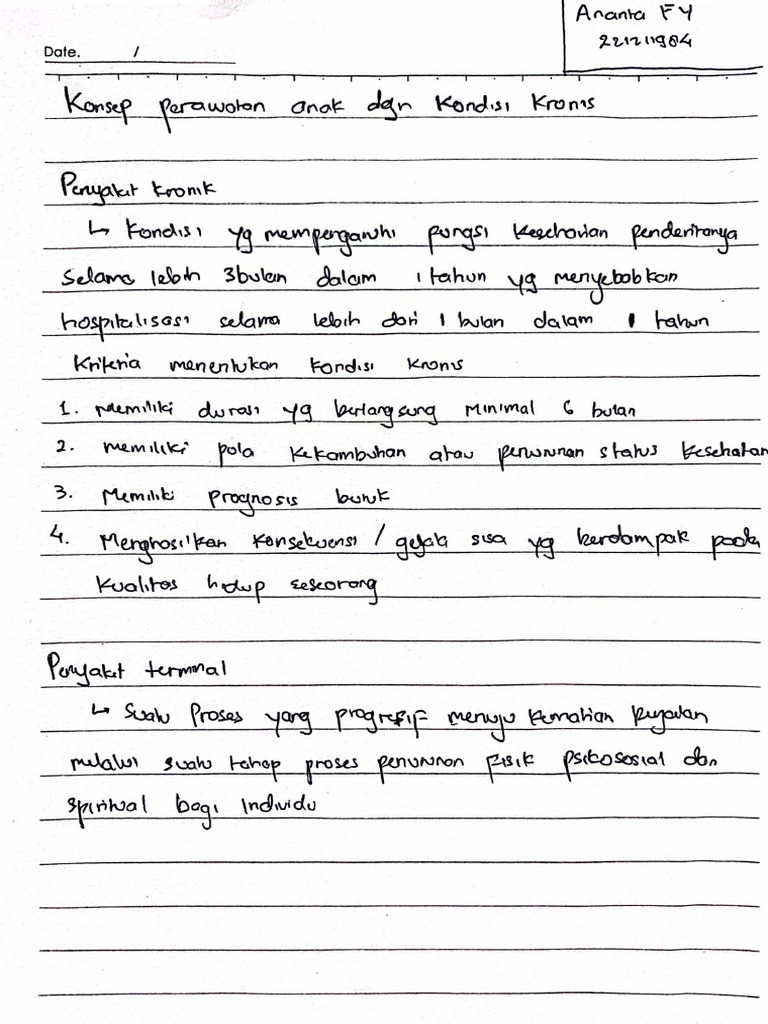 Ananta FY
221211904
Date. /
Konsep perawatan anak dgn Kondisi Kronis
Penyakit kronik
↳ Kondisi yg mempengaruhi fungsi kesehatan penderitanya
selama lebih 3bulan dalam 1 tahun yg menyebabkan
hospitalisasi selama lebih dari 1 bulan dalam 1 tahun
Kriteria menentukan kondisi kronis
1. Memiliki durasi yg berlangsung minimal 6 bulan
2. memiliki pola kekambuhan atau penurunan status kesehatan
3. Memiliki prognosis buruk
4. Menghasilkan konsekuensi / gejala sisa yg berdampak pada
kualitas hidup seseorang
Penyakit terminal
↳ Suatu Proses yang progresif menuju kematian berjalan
melalui suatu tahap proses penurunan fisik psikososial dan
spiritual bagi individu